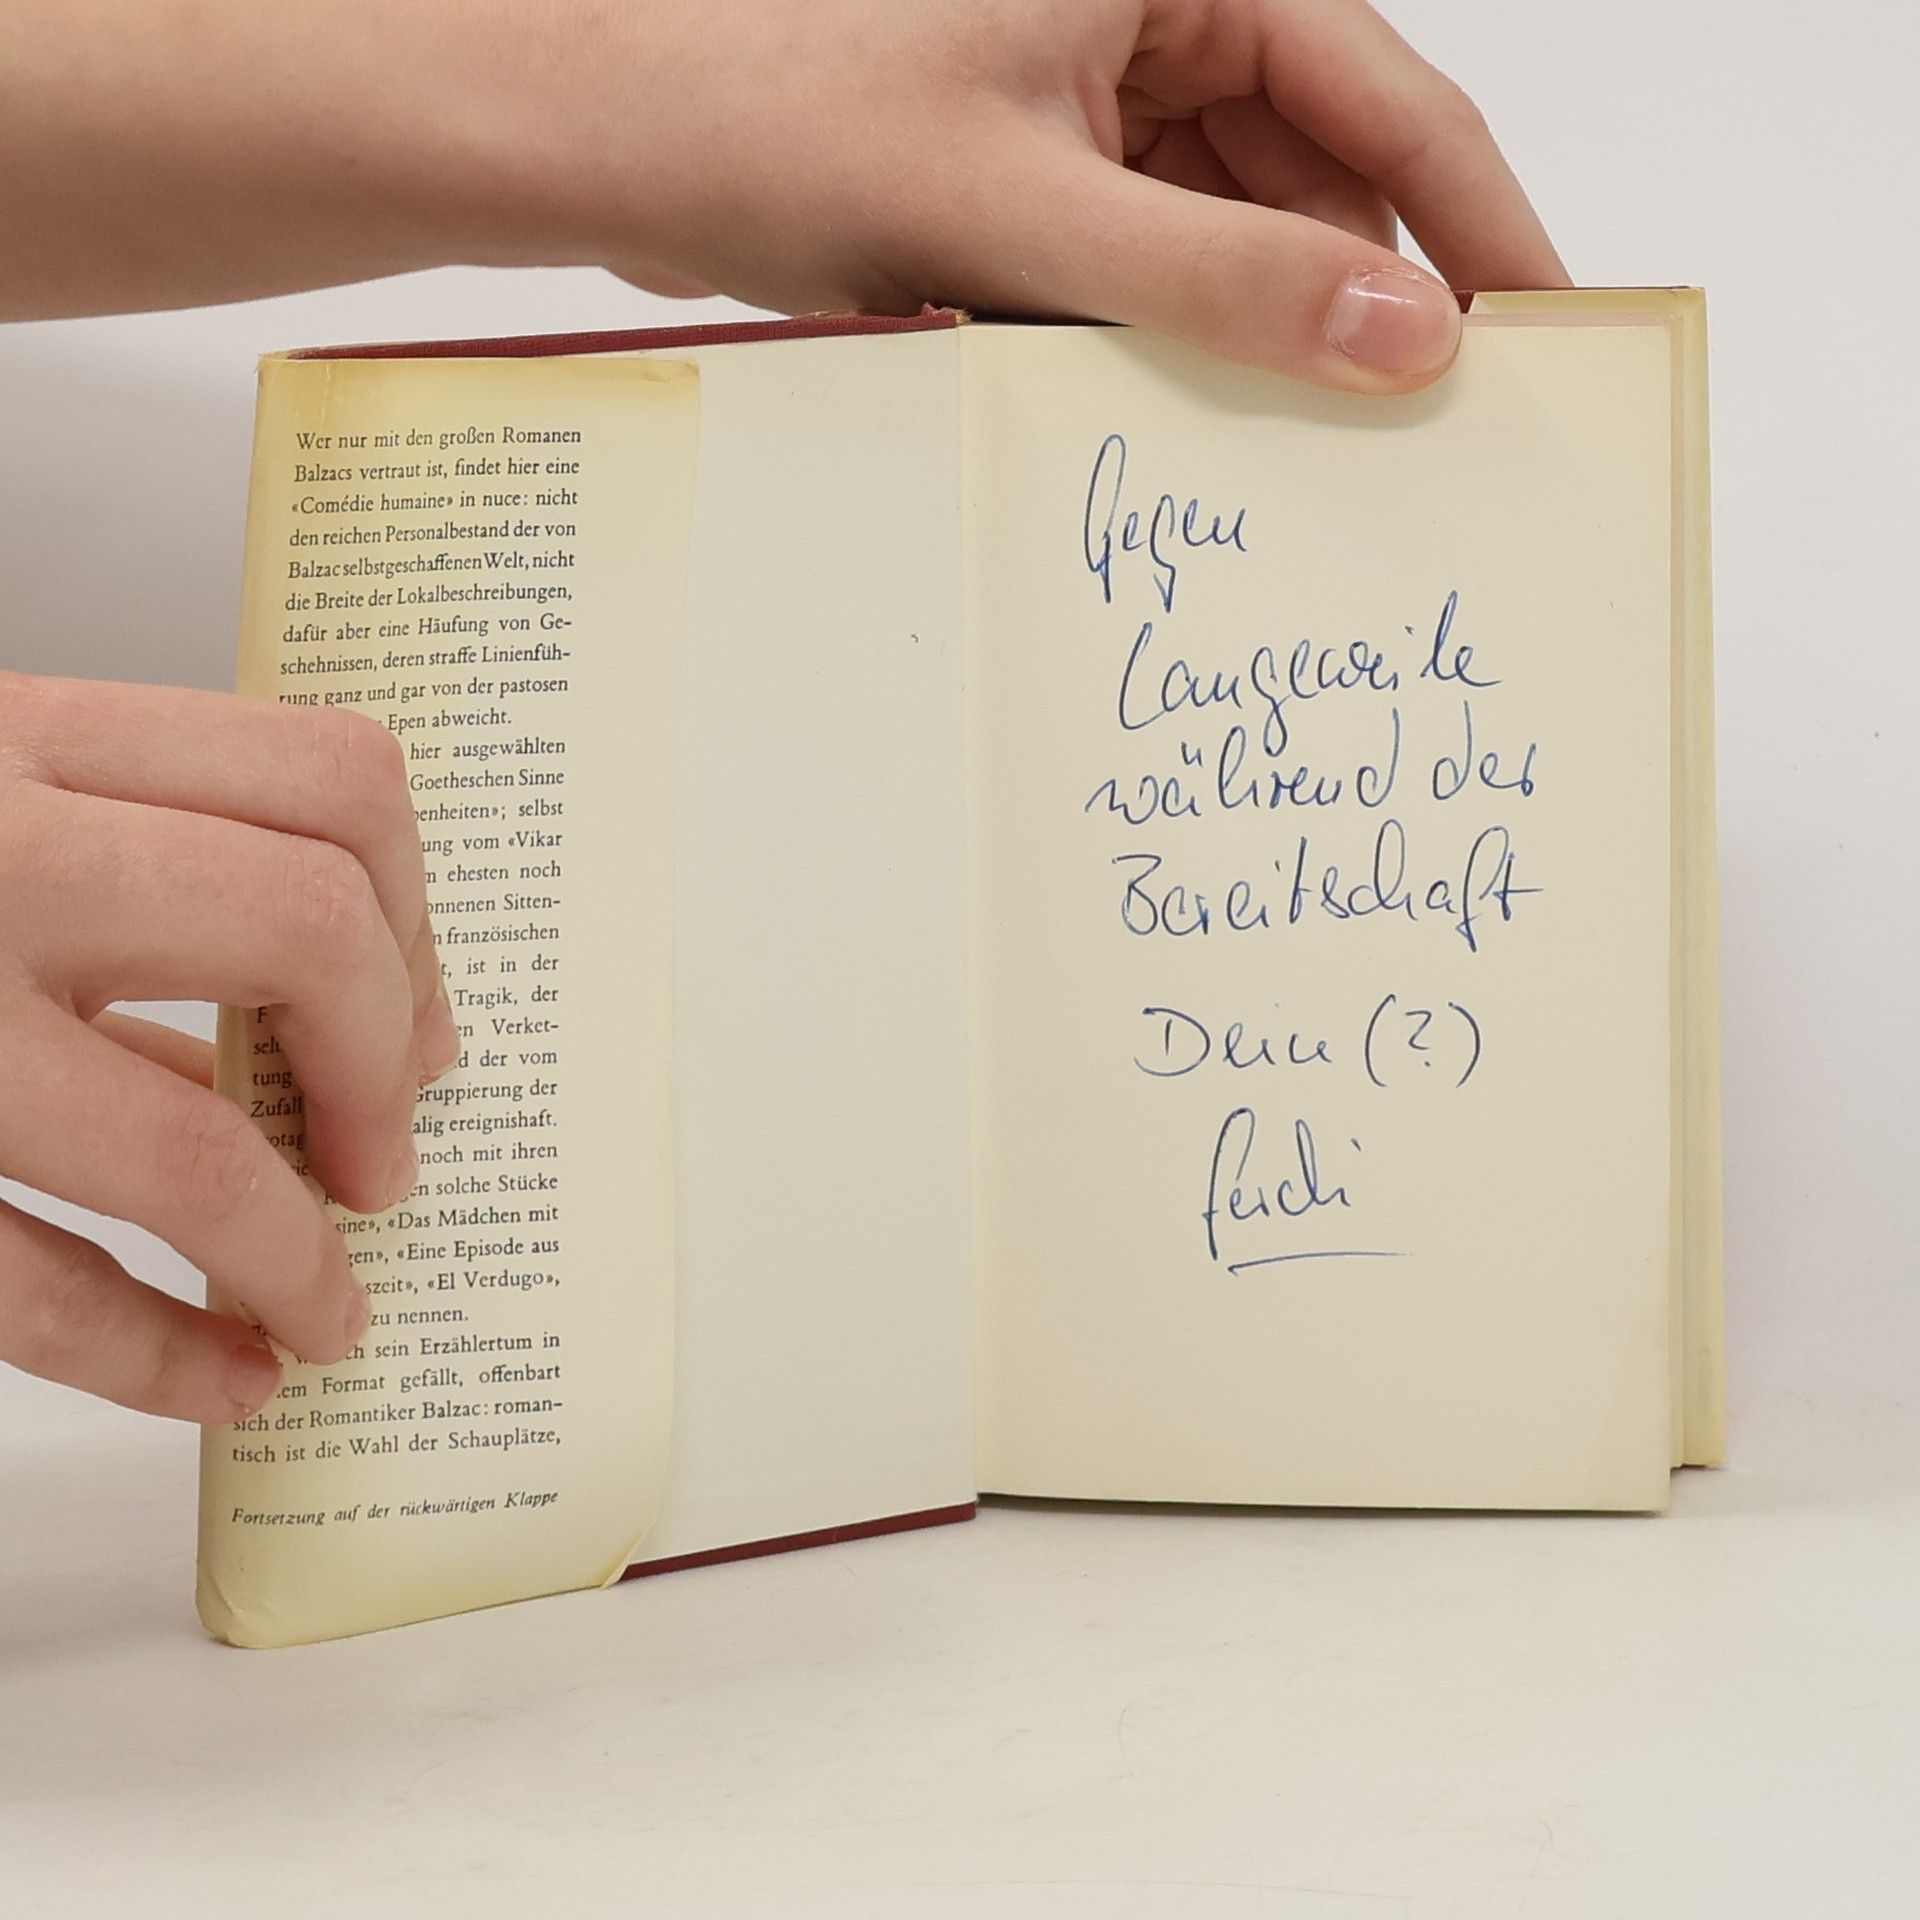 Wer nur mit den großen Romanen
Balzacs vertraut ist, findet hier eine
«Comédie humaine» in nuce: nicht
den reichen Personalbestand der von
Balzac selbst geschaffenen Welt, nicht
die Breite der Lokalbeschreibungen,
dafür aber eine Häufung von Ge-
schehnissen, deren straffe Linienfüh-
rung ganz und gar von der pastosen
Epen abweicht.
hier ausgewählten
Goetheschen Sinne
benheiten»; selbst
ung vom «Vikar
ehesten noch
onnenen Sitten-
französischen
ist in der
Tragik, der
Verket-
der vom
tung
Gruppierung der
Zufall
alig ereignishaft.
noch mit ihren
solche Stücke
sine», «Das Mädchen mit
gen», «Eine Episode aus
szeit», «El Verdugo»,
zu nennen.
sein Erzählertum in
Format gefällt, offenbart
sich der Romantiker Balzac: roman-
tisch ist die Wahl der Schauplätze,
Fortsetzung auf der rückwärtigen Klappe
Gegen
Langeweile
während der
Bereitschaft
Dein (?)